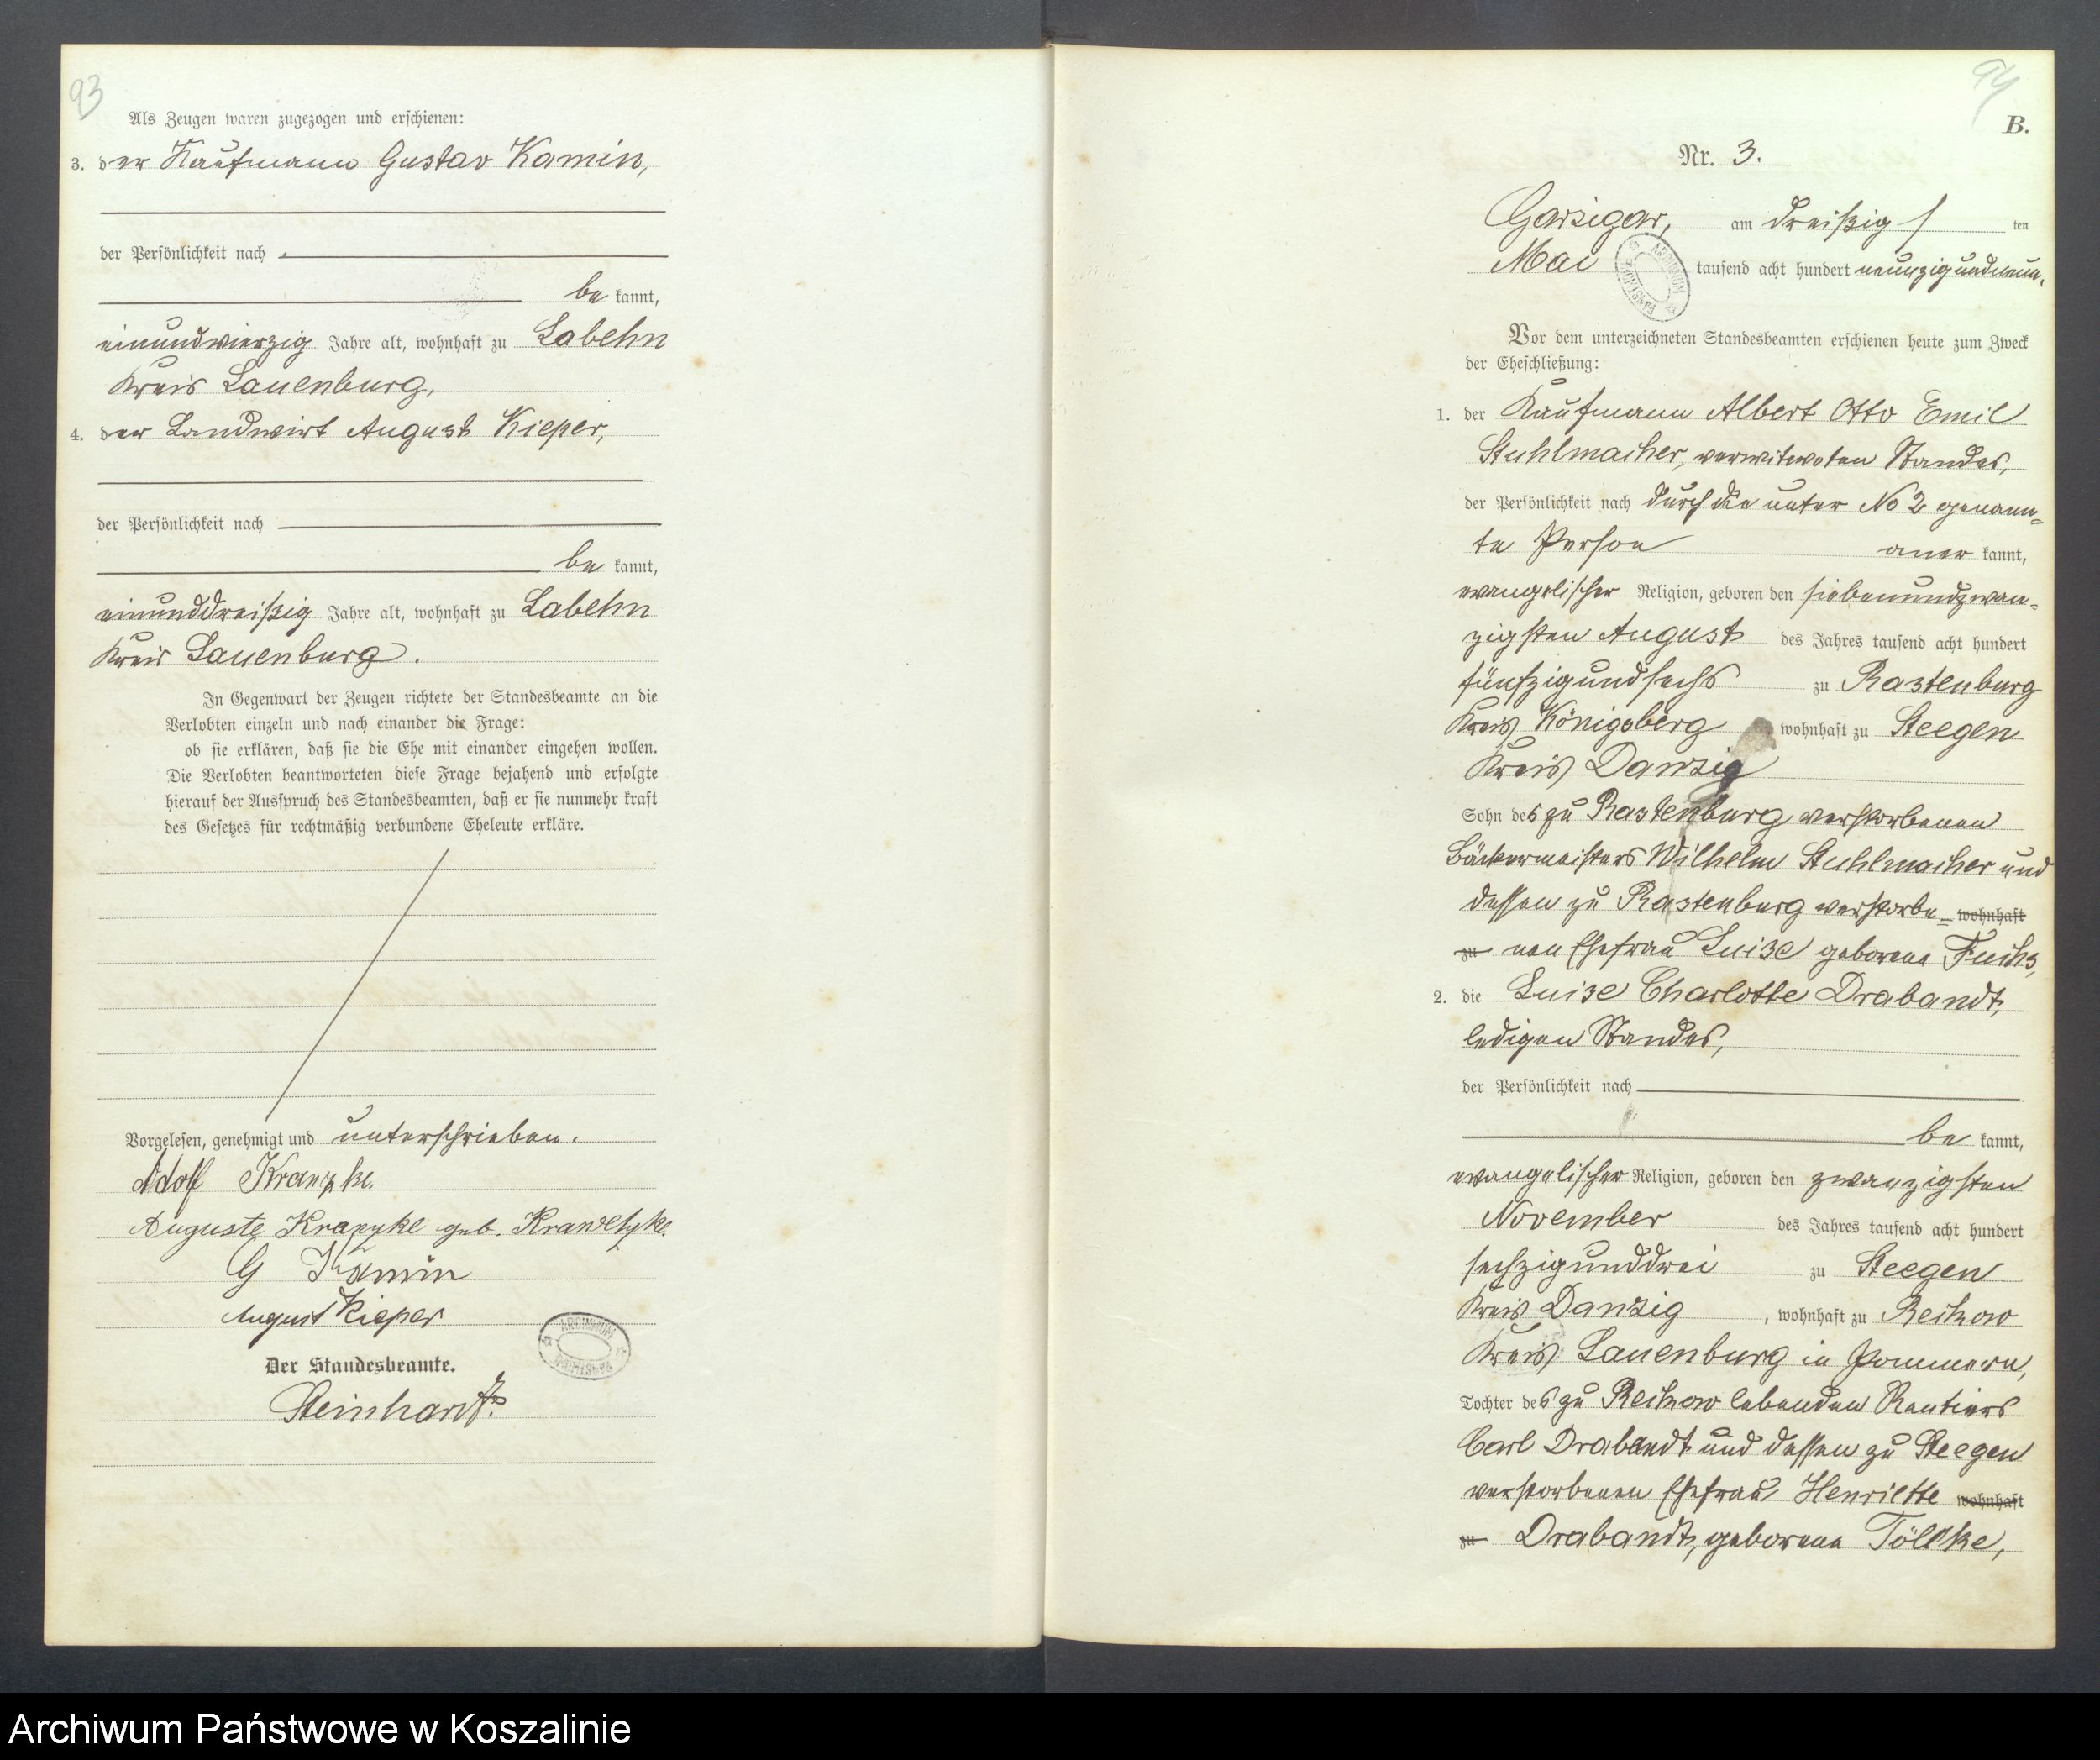 93
Als Zeugen waren zugezogen und erschienen:
3. der Kaufmann Gustav Kamin,
der Persönlichkeit nach
be kannt,
einundvierzig Jahre alt, wohnhaft zu Labehn
Kreis Lauenburg,
4. der Landwirt August Kieper,
der Persönlichkeit nach
be kannt,
einunddreißig Jahre alt, wohnhaft zu Labehn
Kreis Lauenburg.
In Gegenwart der Zeugen richtete der Standesbeamte an die
Verlobten einzeln und nach einander die Frage:
ob sie erklären, daß sie die Ehe mit einander eingehen wollen.
Die Verlobten beantworteten diese Frage bejahend und erfolgte
hierauf der Ausspruch des Standesbeamten, daß er sie nunmehr kraft
des Gesetzes für rechtmäßig verbundene Eheleute erkläre.
Vorgelesen, genehmigt und unterschrieben.
Adolf
Auguste geb.
G Kamin
August Kieper
ARCHIWUM PAŃSTWOWE
Der Standesbeamte.
Steinhardt.
94
B.
Nr. 3.
Garzigar, am dreißig ten
Mai tausend acht hundert neunzigundneun.
ARCHIWUM PAŃSTWOWE
Vor dem unterzeichneten Standesbeamten erschienen heute zum Zweck
der Eheschließung:
1. der Kaufmann Albert Otto Emil
Stuhlmacher, verwitweten Standes,
der Persönlichkeit nach durch die unter No 2 genann=
te Person aner kannt,
evangelischer Religion, geboren den siebenundzwan=
zigsten August des Jahres tausend acht hundert
fünfzigundsechs zu Rastenburg
Kreis Königsberg wohnhaft zu Steegen
Kreis Danzig
Sohn des zu Rastenburg verstorbenen
Bäckermeisters Wilhelm Stuhlmacher und
dessen zu Rastenburg verstorbe= wohnhaft
zu nen Ehefrau Luise geborene Fuchs,
2. die Luise Charlotte Drabandt,
ledigen Standes,
der Persönlichkeit nach
be kannt,
evangelischer Religion, geboren den zwanzigsten
November des Jahres tausend acht hundert
sechzigunddrei zu Steegen
Kreis Danzig, wohnhaft zu Reckow
Kreis Lauenburg in Pommern,
Tochter des zu Reckow lebenden Rentiers
Carl Drabandt und dessen zu Steegen
verstorbenen Ehefrau Henriette wohnhaft
zu Drabandt, geborene Töllke,
Archiwum Państwowe w Koszalinie